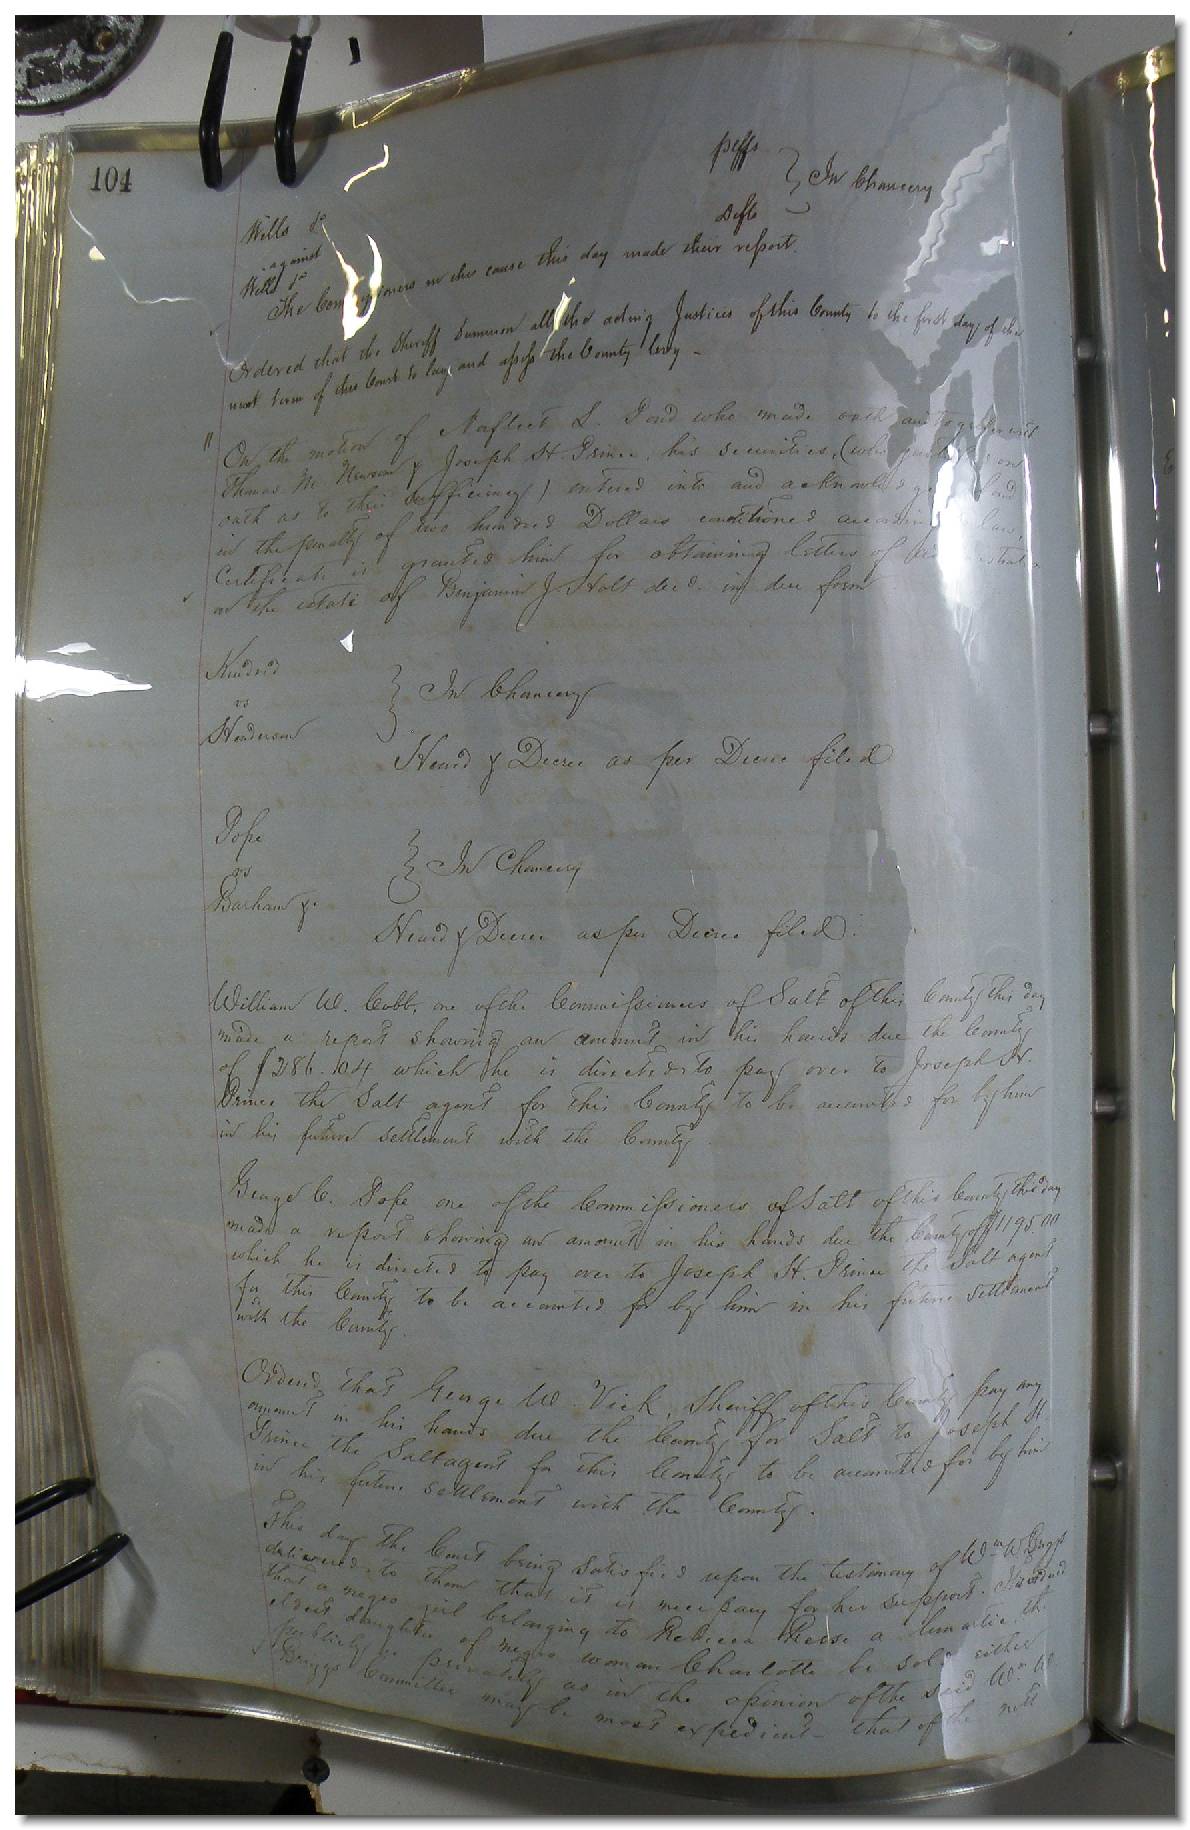 104
Wills &c plffs
against } In Chancery
Wills &c Defts
The Commissioners in this cause this day made their report.
Ordered that the Sheriff Summon all the acting Justices of this County to the first day of the
next term of this Court to lay and assess the County levy –
On the motion of L. Pond who made oath
Thomas M. Newsom & Joseph H. Prince, his securities, (who on
oath as to their sufficiency) entered into and acknowledged
in the penalty of two hundred Dollars conditioned according law,
Certificate is granted him for obtaining letters of
on the estate of Benjamin J Holt decd. in due form
Kindred
vs } In Chancery
Henderson
Heard & Decree as per Decree filed
Pope
vs } In Chancery
Barham &c
Heard & Decree as per Decree filed.
William W. Cobb, one of the Commissioners of Salt of this County this day
made a report showing an amount in his hands due the County
of $286.04 which he is directed to pay over to Joseph H.
Prince the Salt agent for this County to be accounted for by him
in his future settlement with the County.
George C. Pope one of the Commissioners of Salt of this County this day
made a report showing an amount in his hands due the County of $1195.00
which he is directed to pay over to Joseph H. Prince the Salt agent
for this County to be accounted for by him in his future settlement
with the County.
Ordered that George W. Vick, Sheriff of this County pay any
amount in his hands due the County for Salt to Joseph H.
Prince the Salt agent for this County to be accounted for by him
in his future settlement with the County.
This day the Court being satisfied upon the testimony of Wm W Briggs
delivered to them that it is necessary for her support.
that a negro girl belonging to Rebecca a lunatic the
eldest daughter of negro woman Charlotte be sold either
publicly or privately as in the opinion of the said Wm W
Briggs Committee may be most expedient – that of the nett